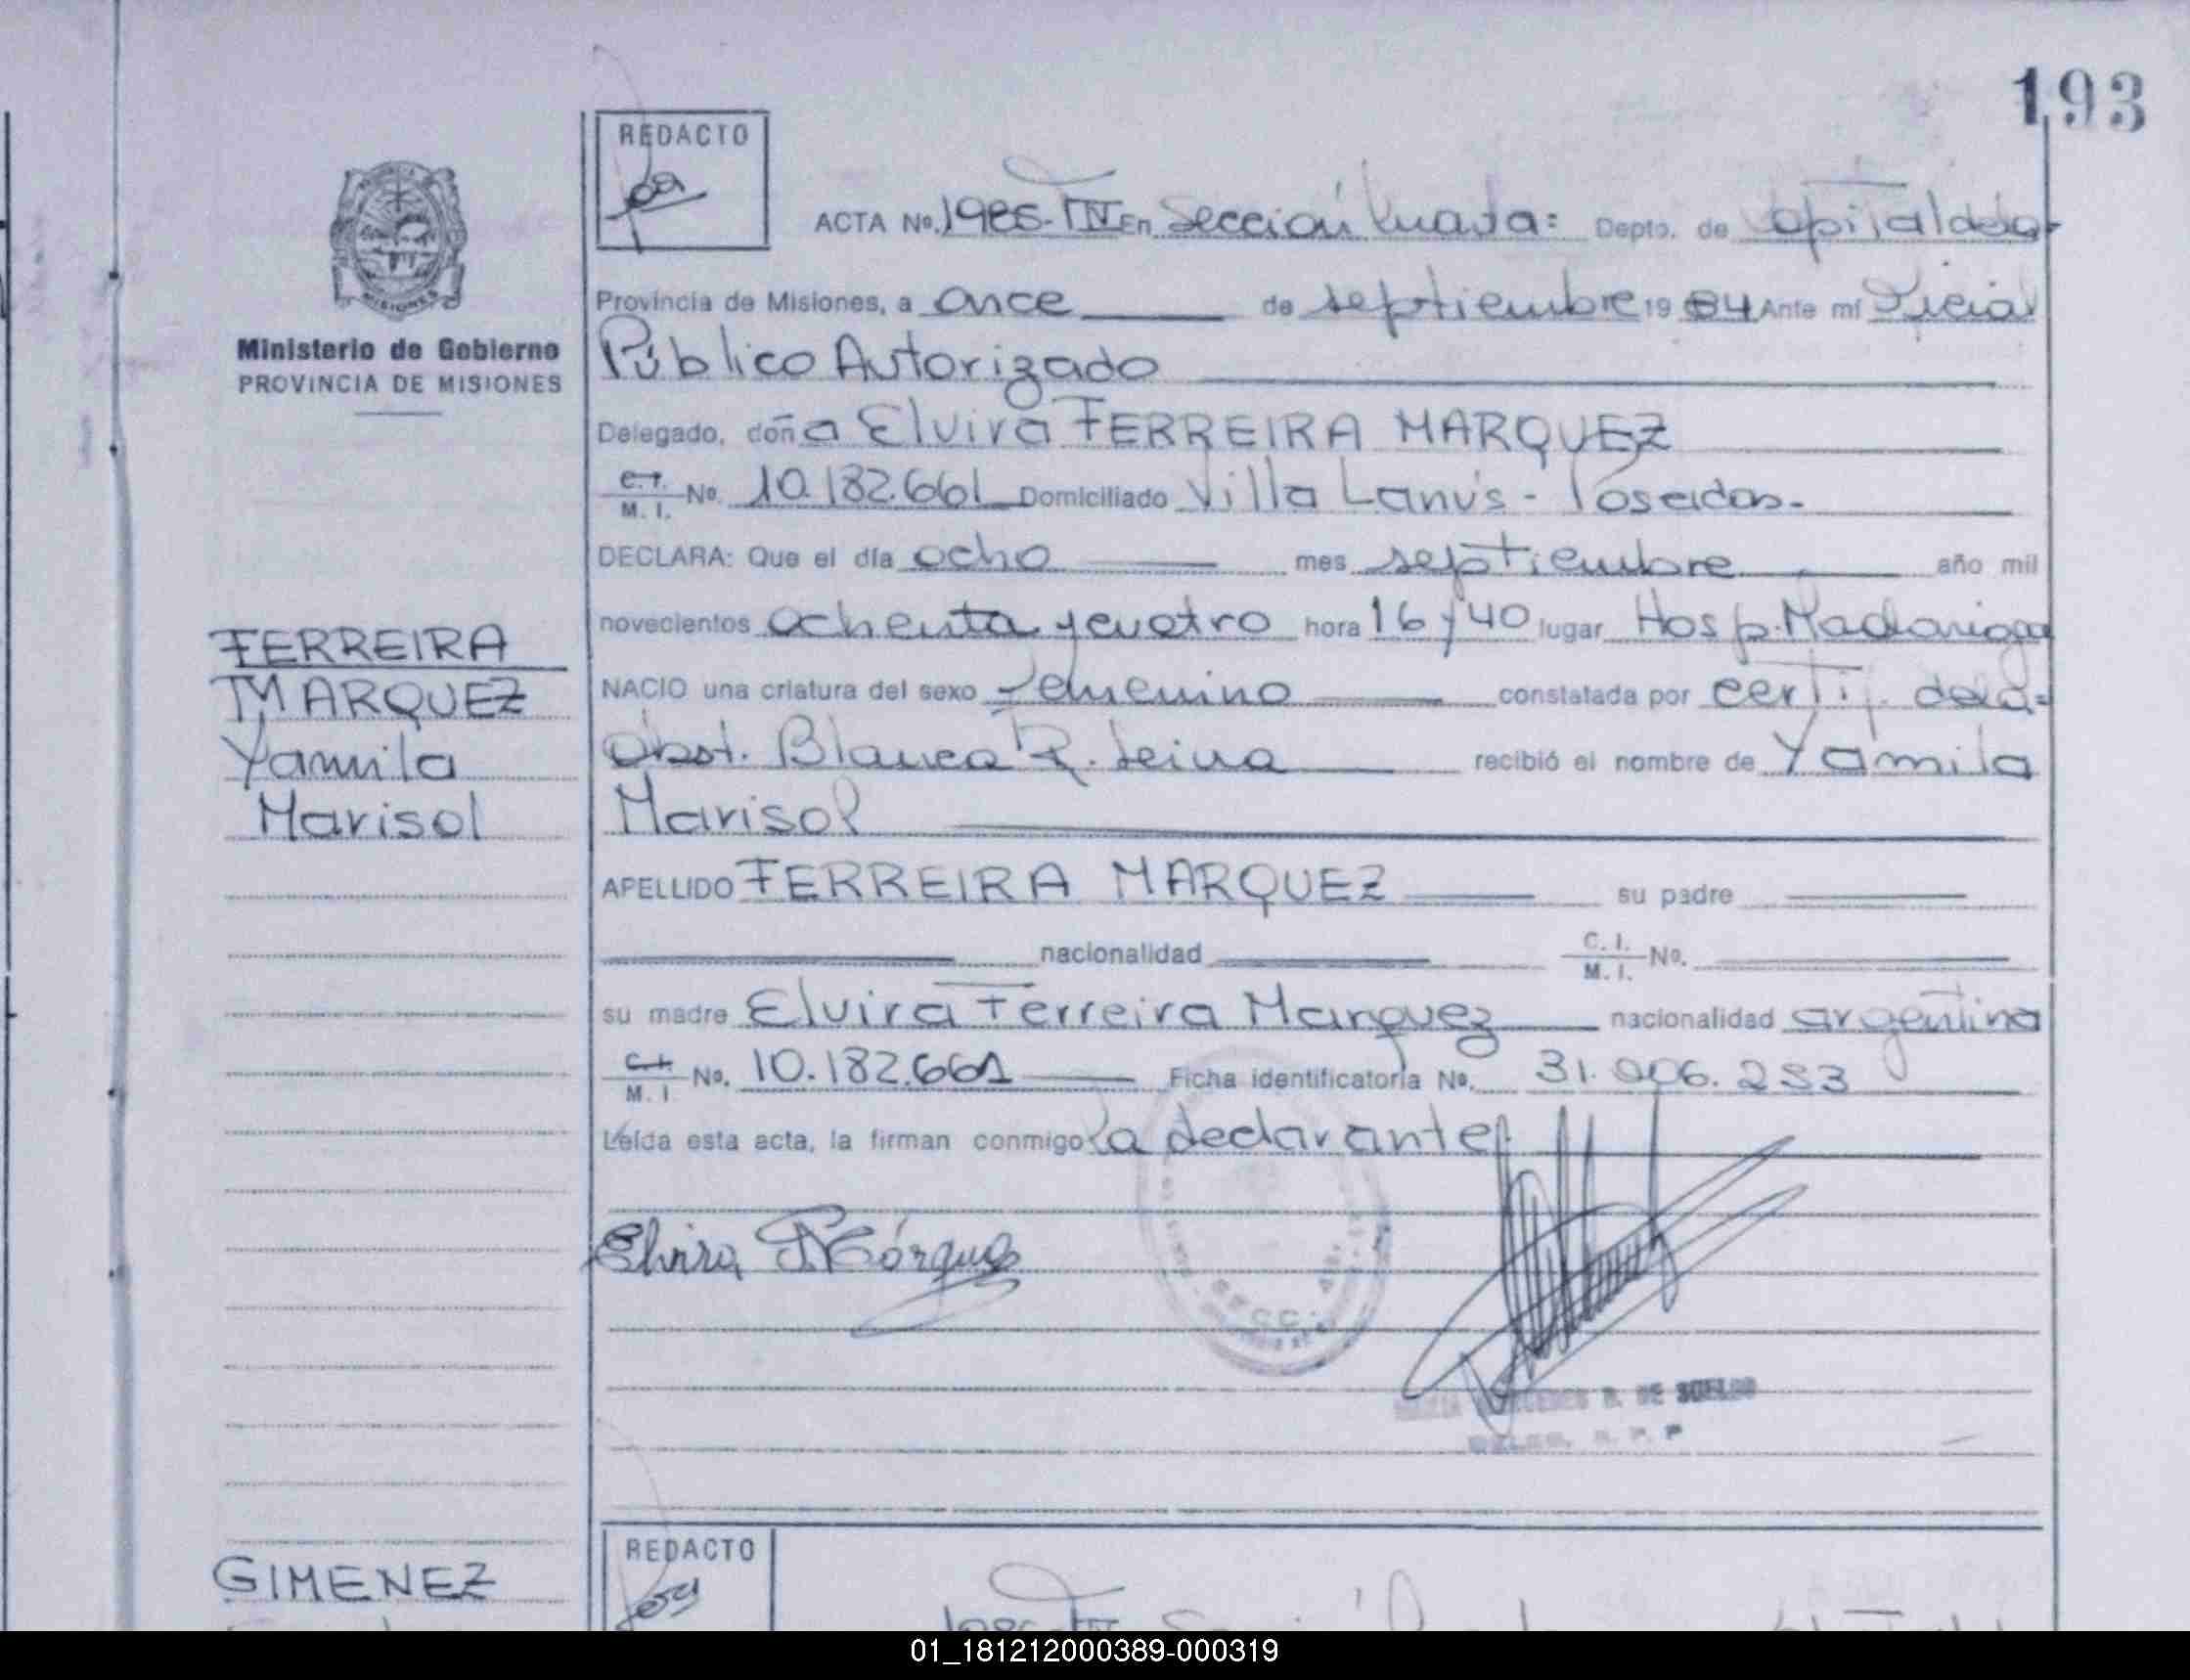 193
REDACTO
ACTA Nº. 1985-TIV En Sección Cuarta: Depto. de Capital de la
Provincia de Misiones, a once de septiembre 19 84 Ante mí Oficial
Público Autorizado
Ministerio de Gobierno
PROVINCIA DE MISIONES
Delegado, doña Elvira FERREIRA MARQUEZ
C.I.
M. I. Nº. 10.182.661 Domiciliado Villa Lanús - Posadas.
DECLARA: Que el día ocho mes septiembre año mil
novecientos ochenta y cuatro hora 16 y 40 lugar Hosp. Madariaga
FERREIRA
MARQUEZ
Yamila
Marisol
NACIO una criatura del sexo femenino constatada por certif. de la
Obst. Blanca R. recibió el nombre de Yamila
Marisol
APELLIDO FERREIRA MARQUEZ su padre
nacionalidad C. I.
M. I. Nº.
su madre Elvira Ferreira Marquez nacionalidad argentina
C.I.
M. I Nº. 10.182.661 Ficha identificatoria Nº.
Leída esta acta, la firman conmigo la declarante
Elvira F. Márquez
SECC.
DE SUELDO
GIMENEZ
REDACTO
01_181212000389-000319